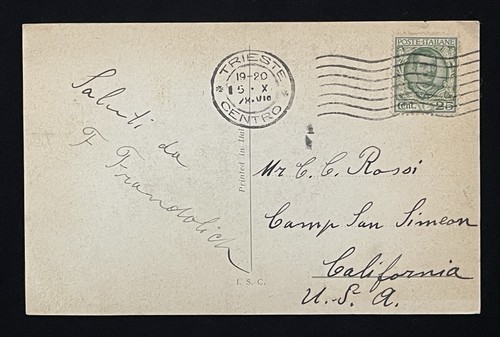 Saluti da
F Frandolich
TRIESTE
19-20
5 · X
CENTRO
POSTE·ITALIANE
Cent. 25
Printed in
Mr C. C. Rossi
Camp San Simeon
California
U. S. A.
I. S. C.